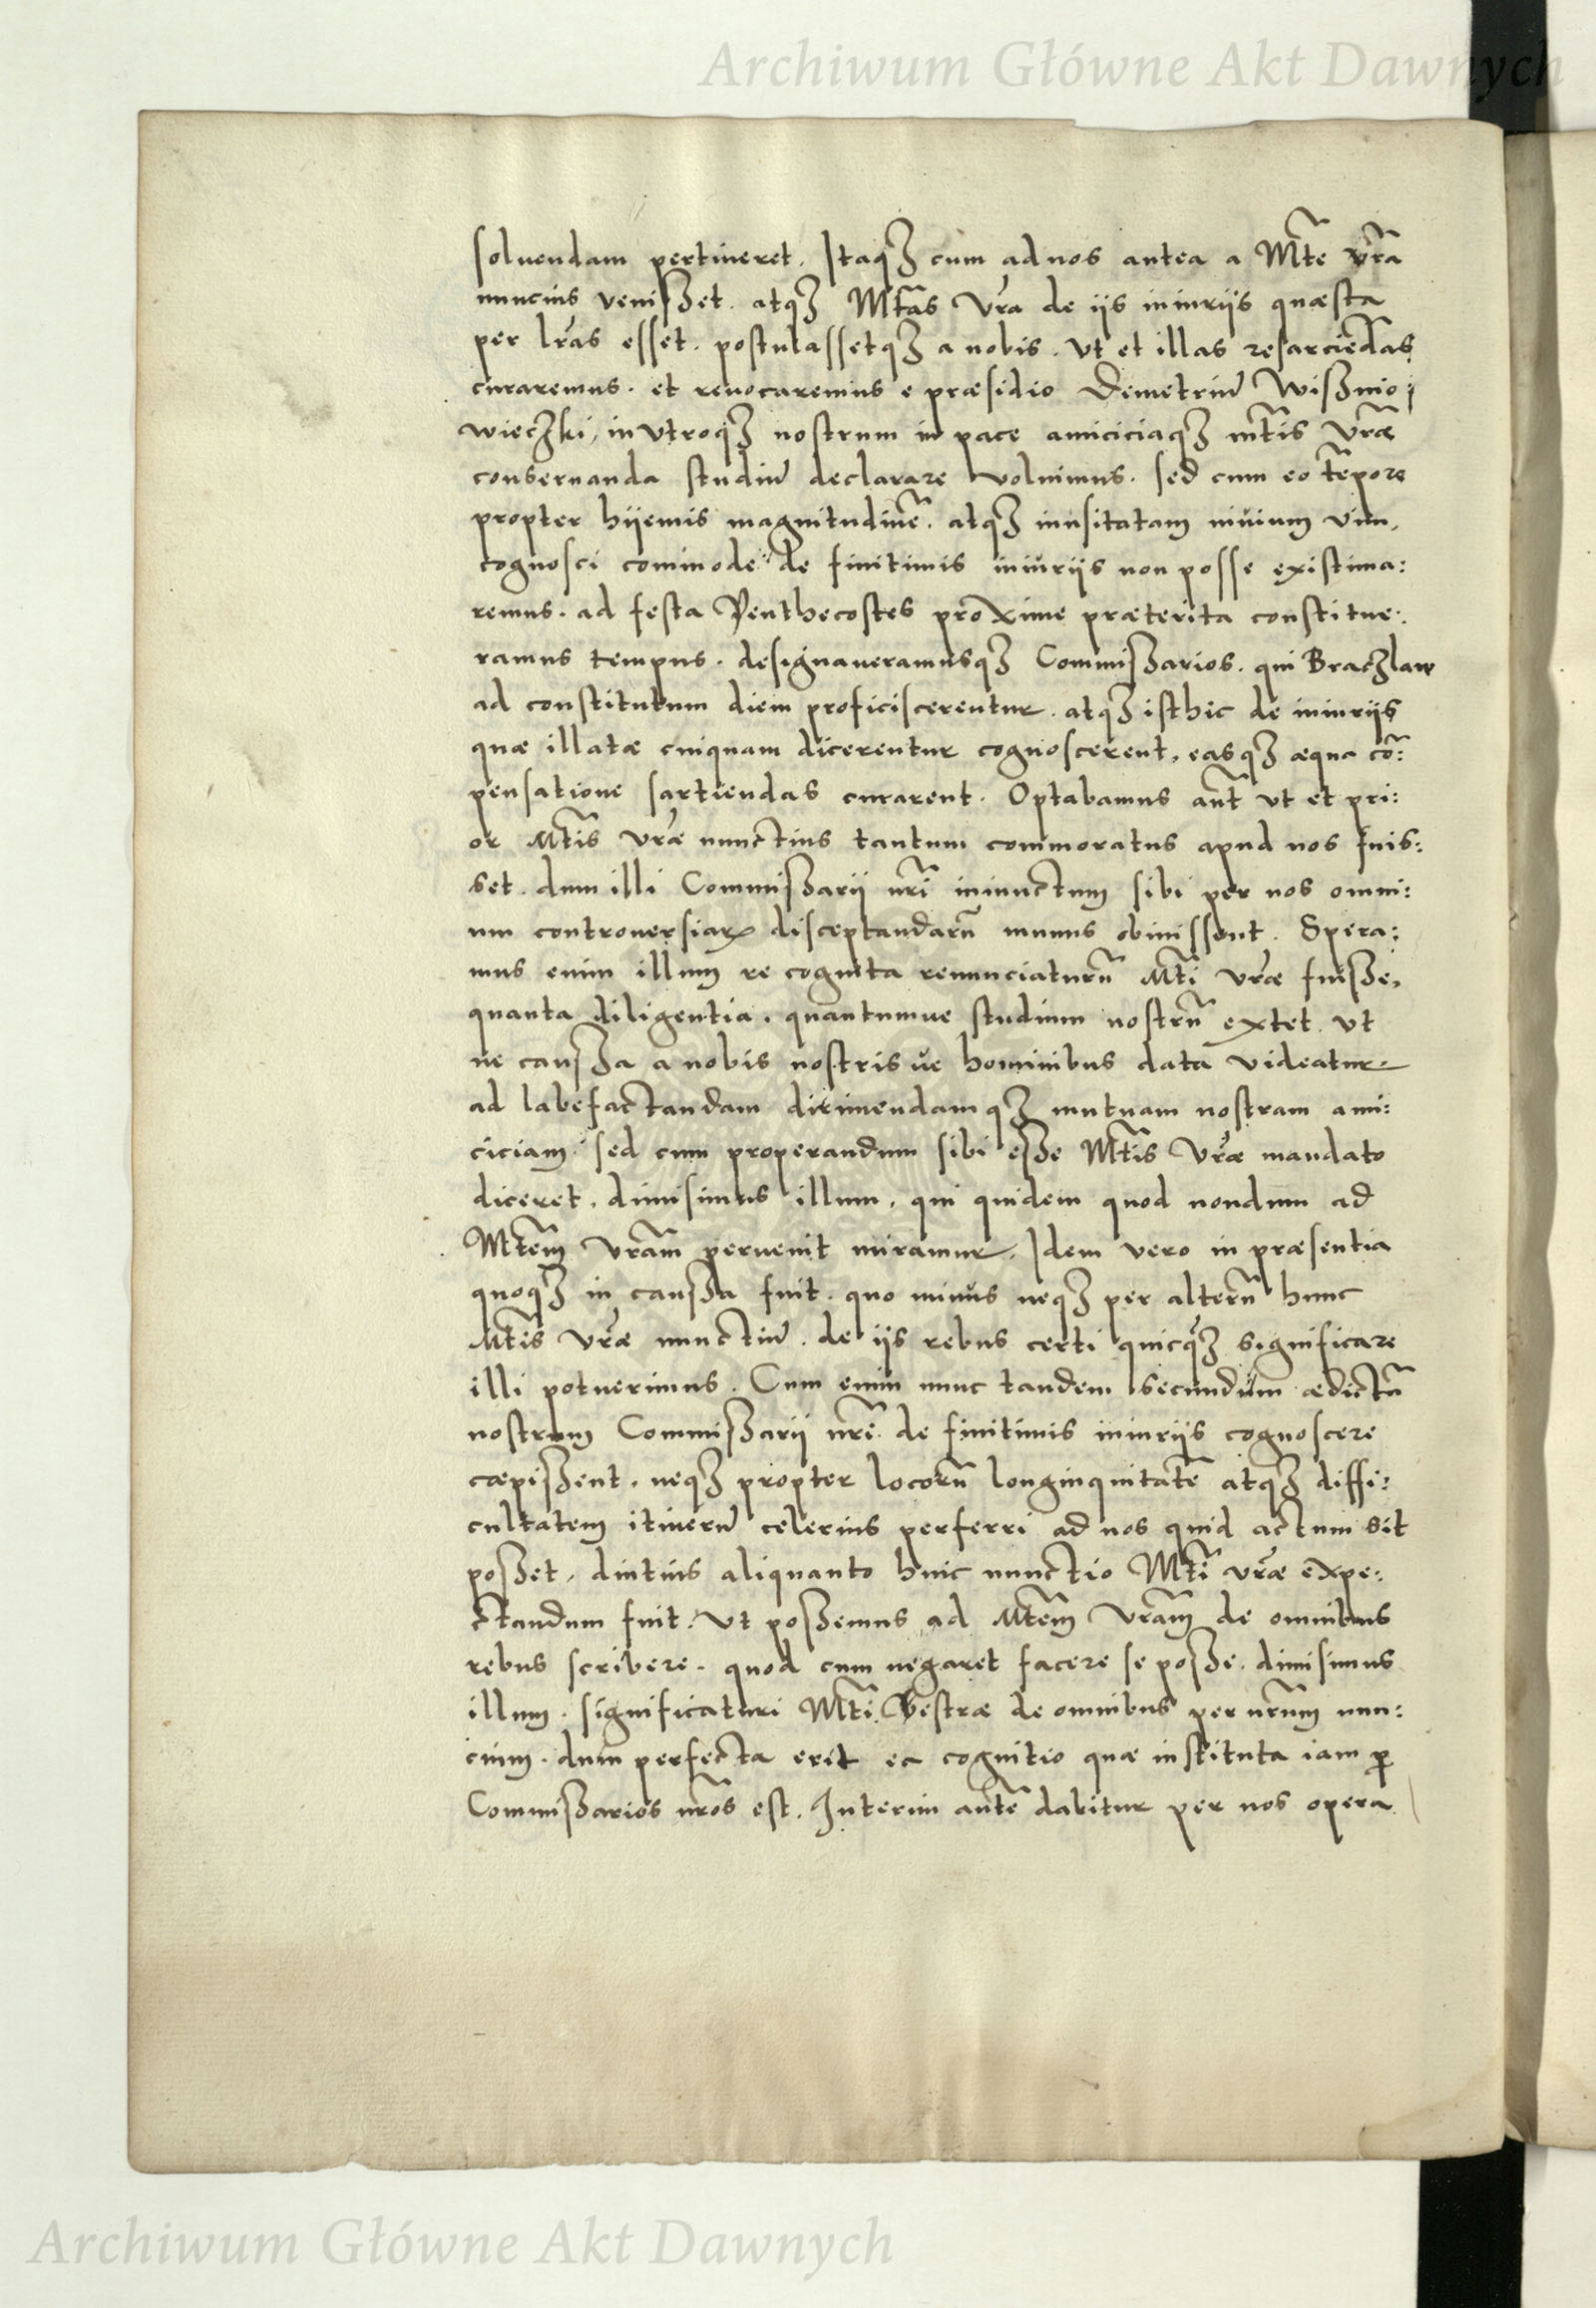 Archiwum Główne Akt Dawnych
soluendam pertineret. Itaqꝫ cum ad nos antea a Mte vra
nuncius venisset. atqꝫ Mtas Vra de iis iniuriis quæsta
per lras esset. postulassetqꝫ a nobis. Vt et illas resarciẽdas
curaremus. et reuocaremus e præsidio Demetriũ Wisznio
wieczki, in vtroqꝫ nostrum in pace amiciciaqꝫ mtis Vræ
conseruanda studiũ declarare voluimus. sed cum eo tẽpore
propter hijemis magnitudinẽ. atqꝫ inusitatam niuium vim,
cognosci commode de finitimis iniuriis non posse existima:
remus. ad festa Penthecostes proxime præterita constitue:
ramus tempus. designaueramusqꝫ Commissarios. qui Braczlaw
ad constitutum diem proficiscerentur. atqꝫ isthic de iniuriis
quæ illatæ cuiquam dicerentur cognoscerent, easqꝫ æqua cõ:
pensatione sartiendas curarent. Optabamus aut vt et pri:
or Mtis vræ nunctius tantum commoratus apud nos fuis:
set. dum illi Commissarii nri iniunctum sibi per nos omni:
um controuersiaꝝ disceptandarũ munus obiuissent. Spera:
mus enim illum re cognita renunciaturũ Mti vræ fuisse,
quanta diligentia. quantumue studium nostrũ extet. vt
ne caussa a nobis nostrisve hominibus data videatur
ad labefactandam dirimendamqꝫ mutuam nostram ami:
ciciam. sed cum properandum sibi esse Mtis Vræ mandato
diceret. dimisimus illum. qui quidem quod nondum ad
Mtem vram peruenit miramur. Idem vero in præsentia
quoqꝫ in caussa fuit. quo minus neqꝫ per alterũ hunc
Mtis vræ nunctiũ. de iis rebus certi quicqꝫ significare
illi potuerimus. Cum enim nunc tandem secundum ædictũ
nostrum Commissarii nri de finitimis iniuriis cognoscere
cæpissent. neqꝫ propter locorũ longinquitatẽ atqꝫ diffi:
cultatem itinerũ celerius perferri ad nos quid actum sit
posset, diutius aliquanto huic nunctio Mti vræ expe:
ctandum fuit. Vt possemus ad Mtem Vram de omnibus
rebus scribere. quod cum negaret facere se posse. dimisimus
illum. significaturi Mti Vestræ de omnibus per nrum nun:
cium. dum perfecta erit ea cognitio quæ instituta iam ꝑ
Commissarios nros est. Interim autẽ dabitur per nos opera
Archiwum Główne Akt Dawnych